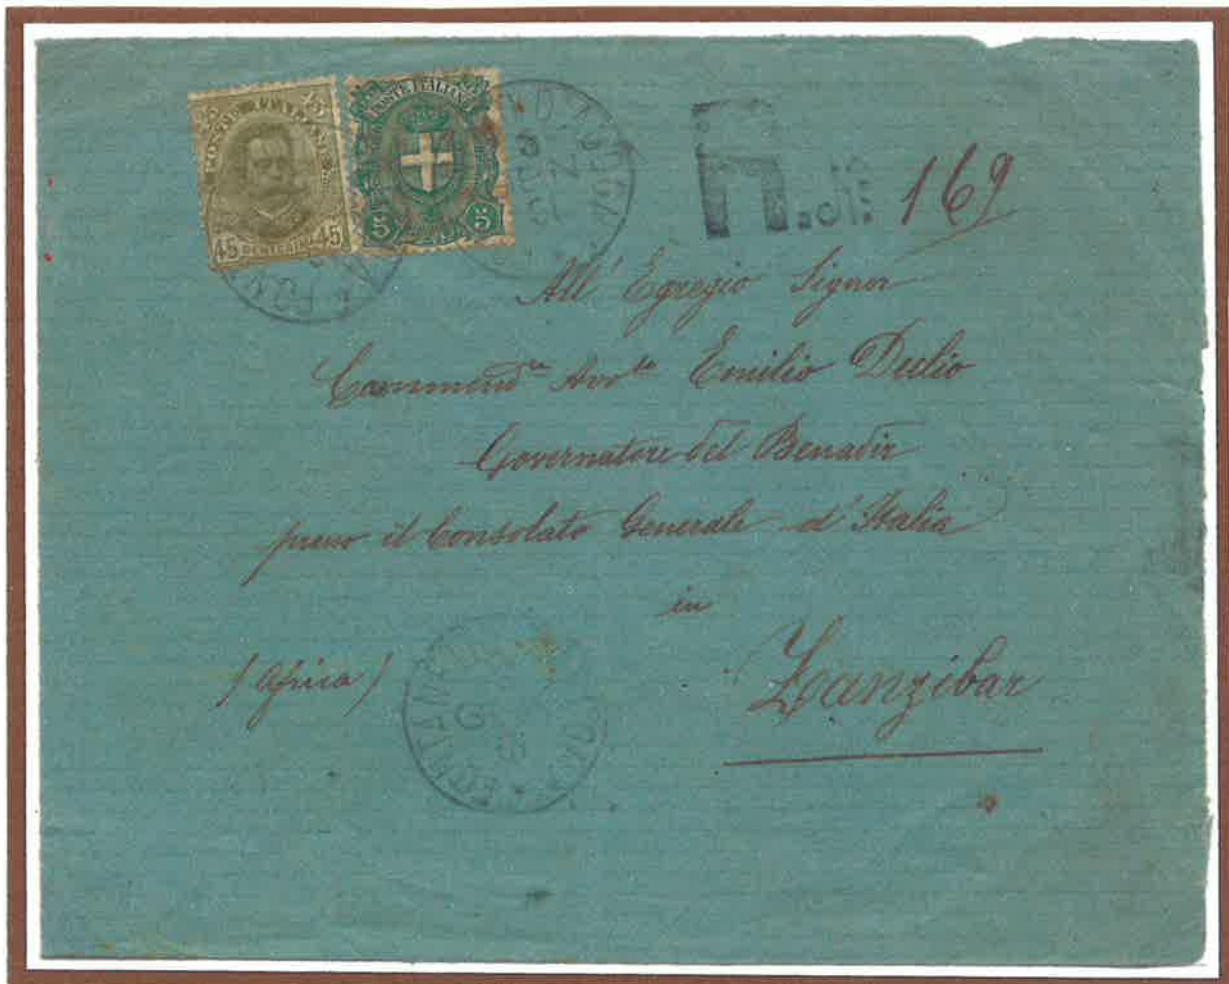 POSTE ITALIANE
45 CENTESIMI 45
5 5
R.
169
All' Egregio Signor
Commend.re Avv.to Emilio Dulio
Governatore del Benadir
presso il Consolato Generale d'Italia
in
(Africa)
Zanzibar